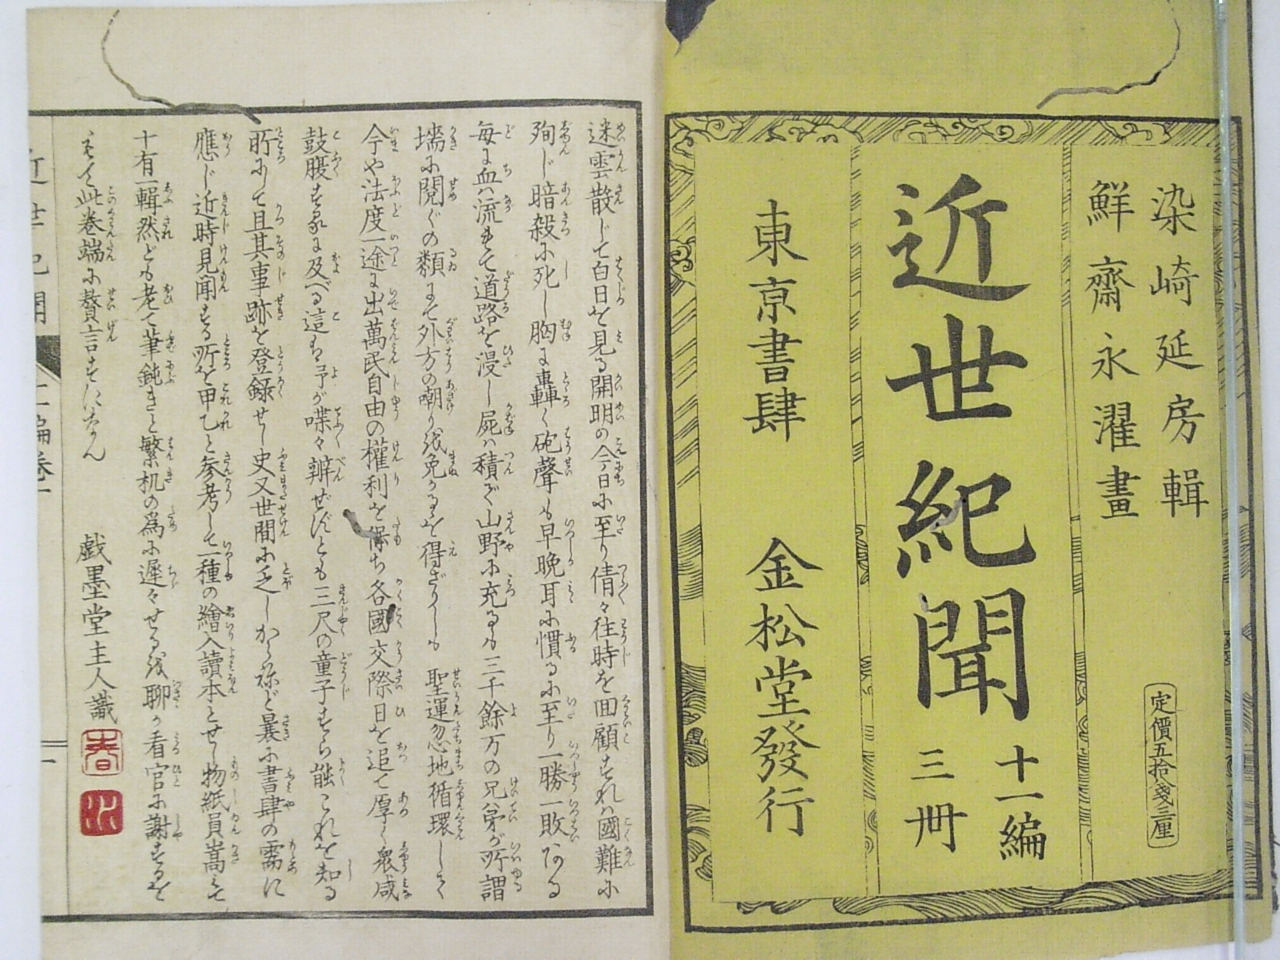 染崎延房輯
鮮齋永濯畫
定價五拾八錢三厘
近世紀聞
十一編
三冊
東京書肆　金松堂發行
迷雲散じて白日を見る開明の今日に至り倩々往時を回顧すれバ國難に
殉じ暗殺に死し胸に轟く砲聲も早晩耳に慣るに至り一勝一敗ある
毎に血ハ流れて道路を浸し屍ハ積で山野に充るも三千餘万の兄弟が所謂
墻に鬩ぐの類にて外方の嘲り或免かるを得ざりしも　聖運忽地循環して
今や法度一途に出萬民自由の權利を保ち各國交際日を追て厚く衆咸
鼓腹する に及べる這も予が喋々辨ぜずとも三尺の童子すら能これを知る
所にて且其事跡を登録せし史又世間に乏しからねど曩に書肆の需に
應じ近時見聞する所を甲乙と参考して一種の繪入讀本とせし物紙員嵩て
十有一輯然ども老て筆鈍きと繁机の為に遲々せる或聊か看官に謝するを
もて此巻端に贅言すになん
戯墨堂主人識
春水
近世紀聞
十一編巻一
一